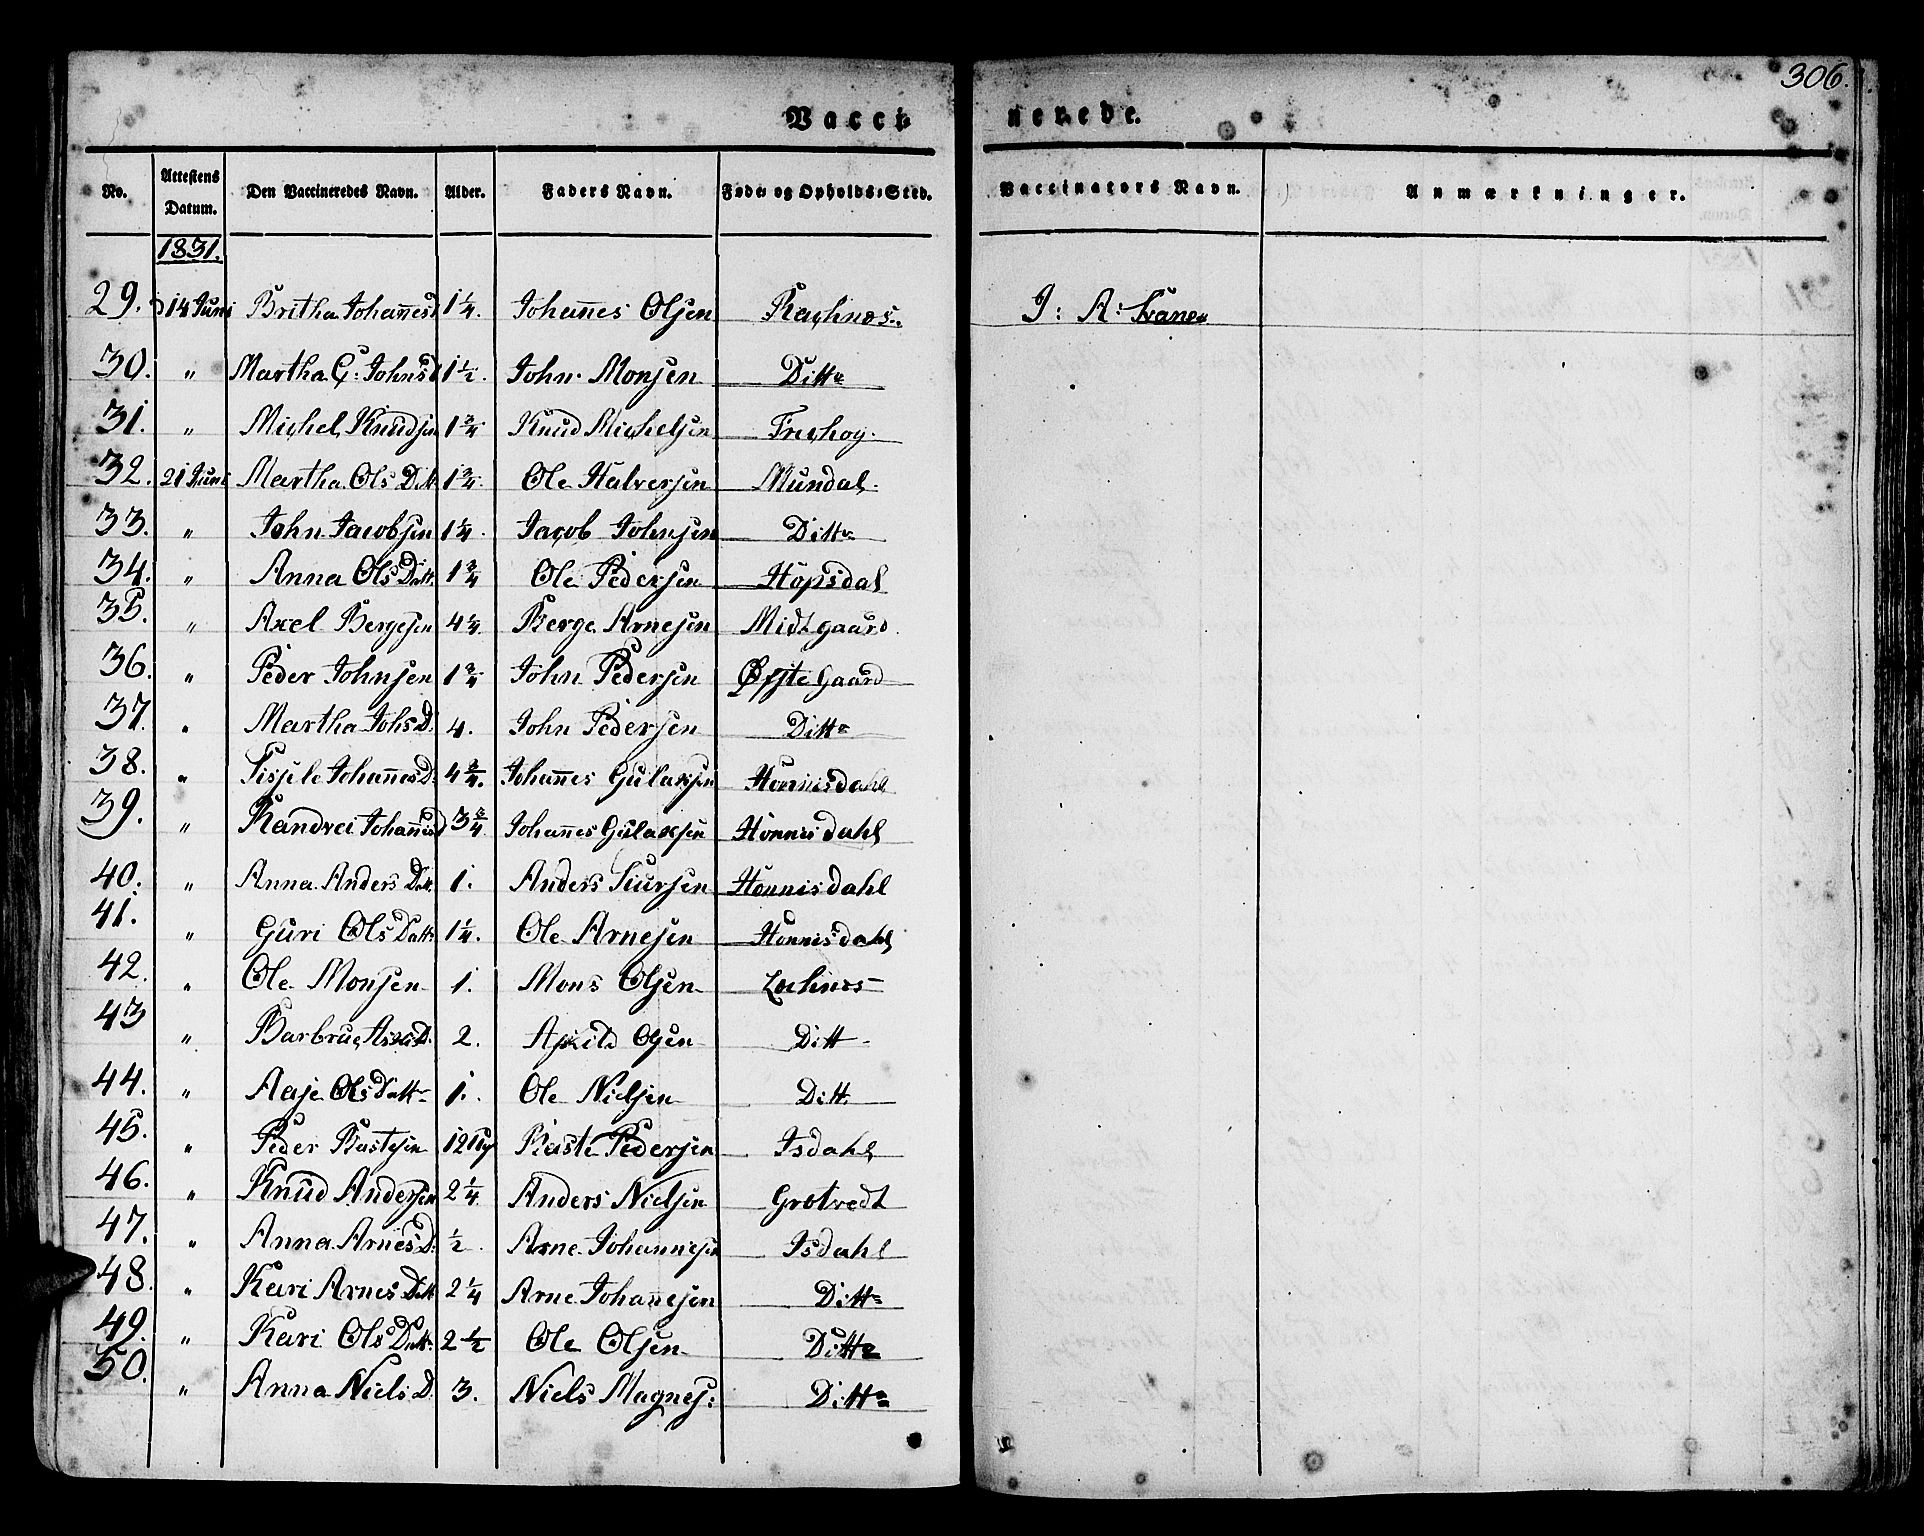 306.
Vacci nerede.
No. Attestens Datum. Den Vaccineredes Navn. Alder. Faders Navn. Føde- og Opholds-Sted. Vaccinators Navn. Anmærkninger.
1831.
29. 14 Juni Britha Johañesd 1¼. Johañes Olsen J: A:
30. " Martha G: Johnsd 1½. John Monsen Ditto
31. " Michel Knudsen 1¾ Knud Michelsen
32. 21 Juni Martha Ols Dtt 1¾. Ole Halversen Mundal.
33. " John Jacobsen 1¼. Jacob Johnsen Ditto
34. " Anna Ols Datt. 1¾ Ole Pedersen Hopsdal
35. " Axel Bergesen 4¼. Berge Arnesen Midtgaard.
36. " Peder Johnsen 1¾ John Pedersen Øfste Gaard
37. " Martha Johs D. 4. John Pedersen Ditto
38. " Johañes D. 4¾. Johañes Gulaksen Hönnisdahl
39. " Randvei Johañesd 3¾ Johañes Gulaksen Hönnisdahl
40. " Anna Anders Dtt. 1. Anders Siursen Hönnisdahl
41. " Guri Ols Datt. 1¼. Ole Arnesen Hönnisdahl
42. " Ole Monsen 1. Mons Olsen
43 " D. 2. Olsen Ditt
44. " Ols Datt 1. Ole Nielsen Ditt.
45. " Peder Rastesen 12 Raste Pedersen Isdahl
46. " Knud Andersen 2¼ Anders Nielsen Grotvedt
47. " Anna Arnes D. ½. Arne Johannesen Isdahl
48. " Kari Arnes Dtt 2¼ Arne Johañesen Ditto
49. " Kari Ols Datt. 2½ Ole Olsen Ditto
50. " Anna Niels D. 3. Niels Magnes: Ditto